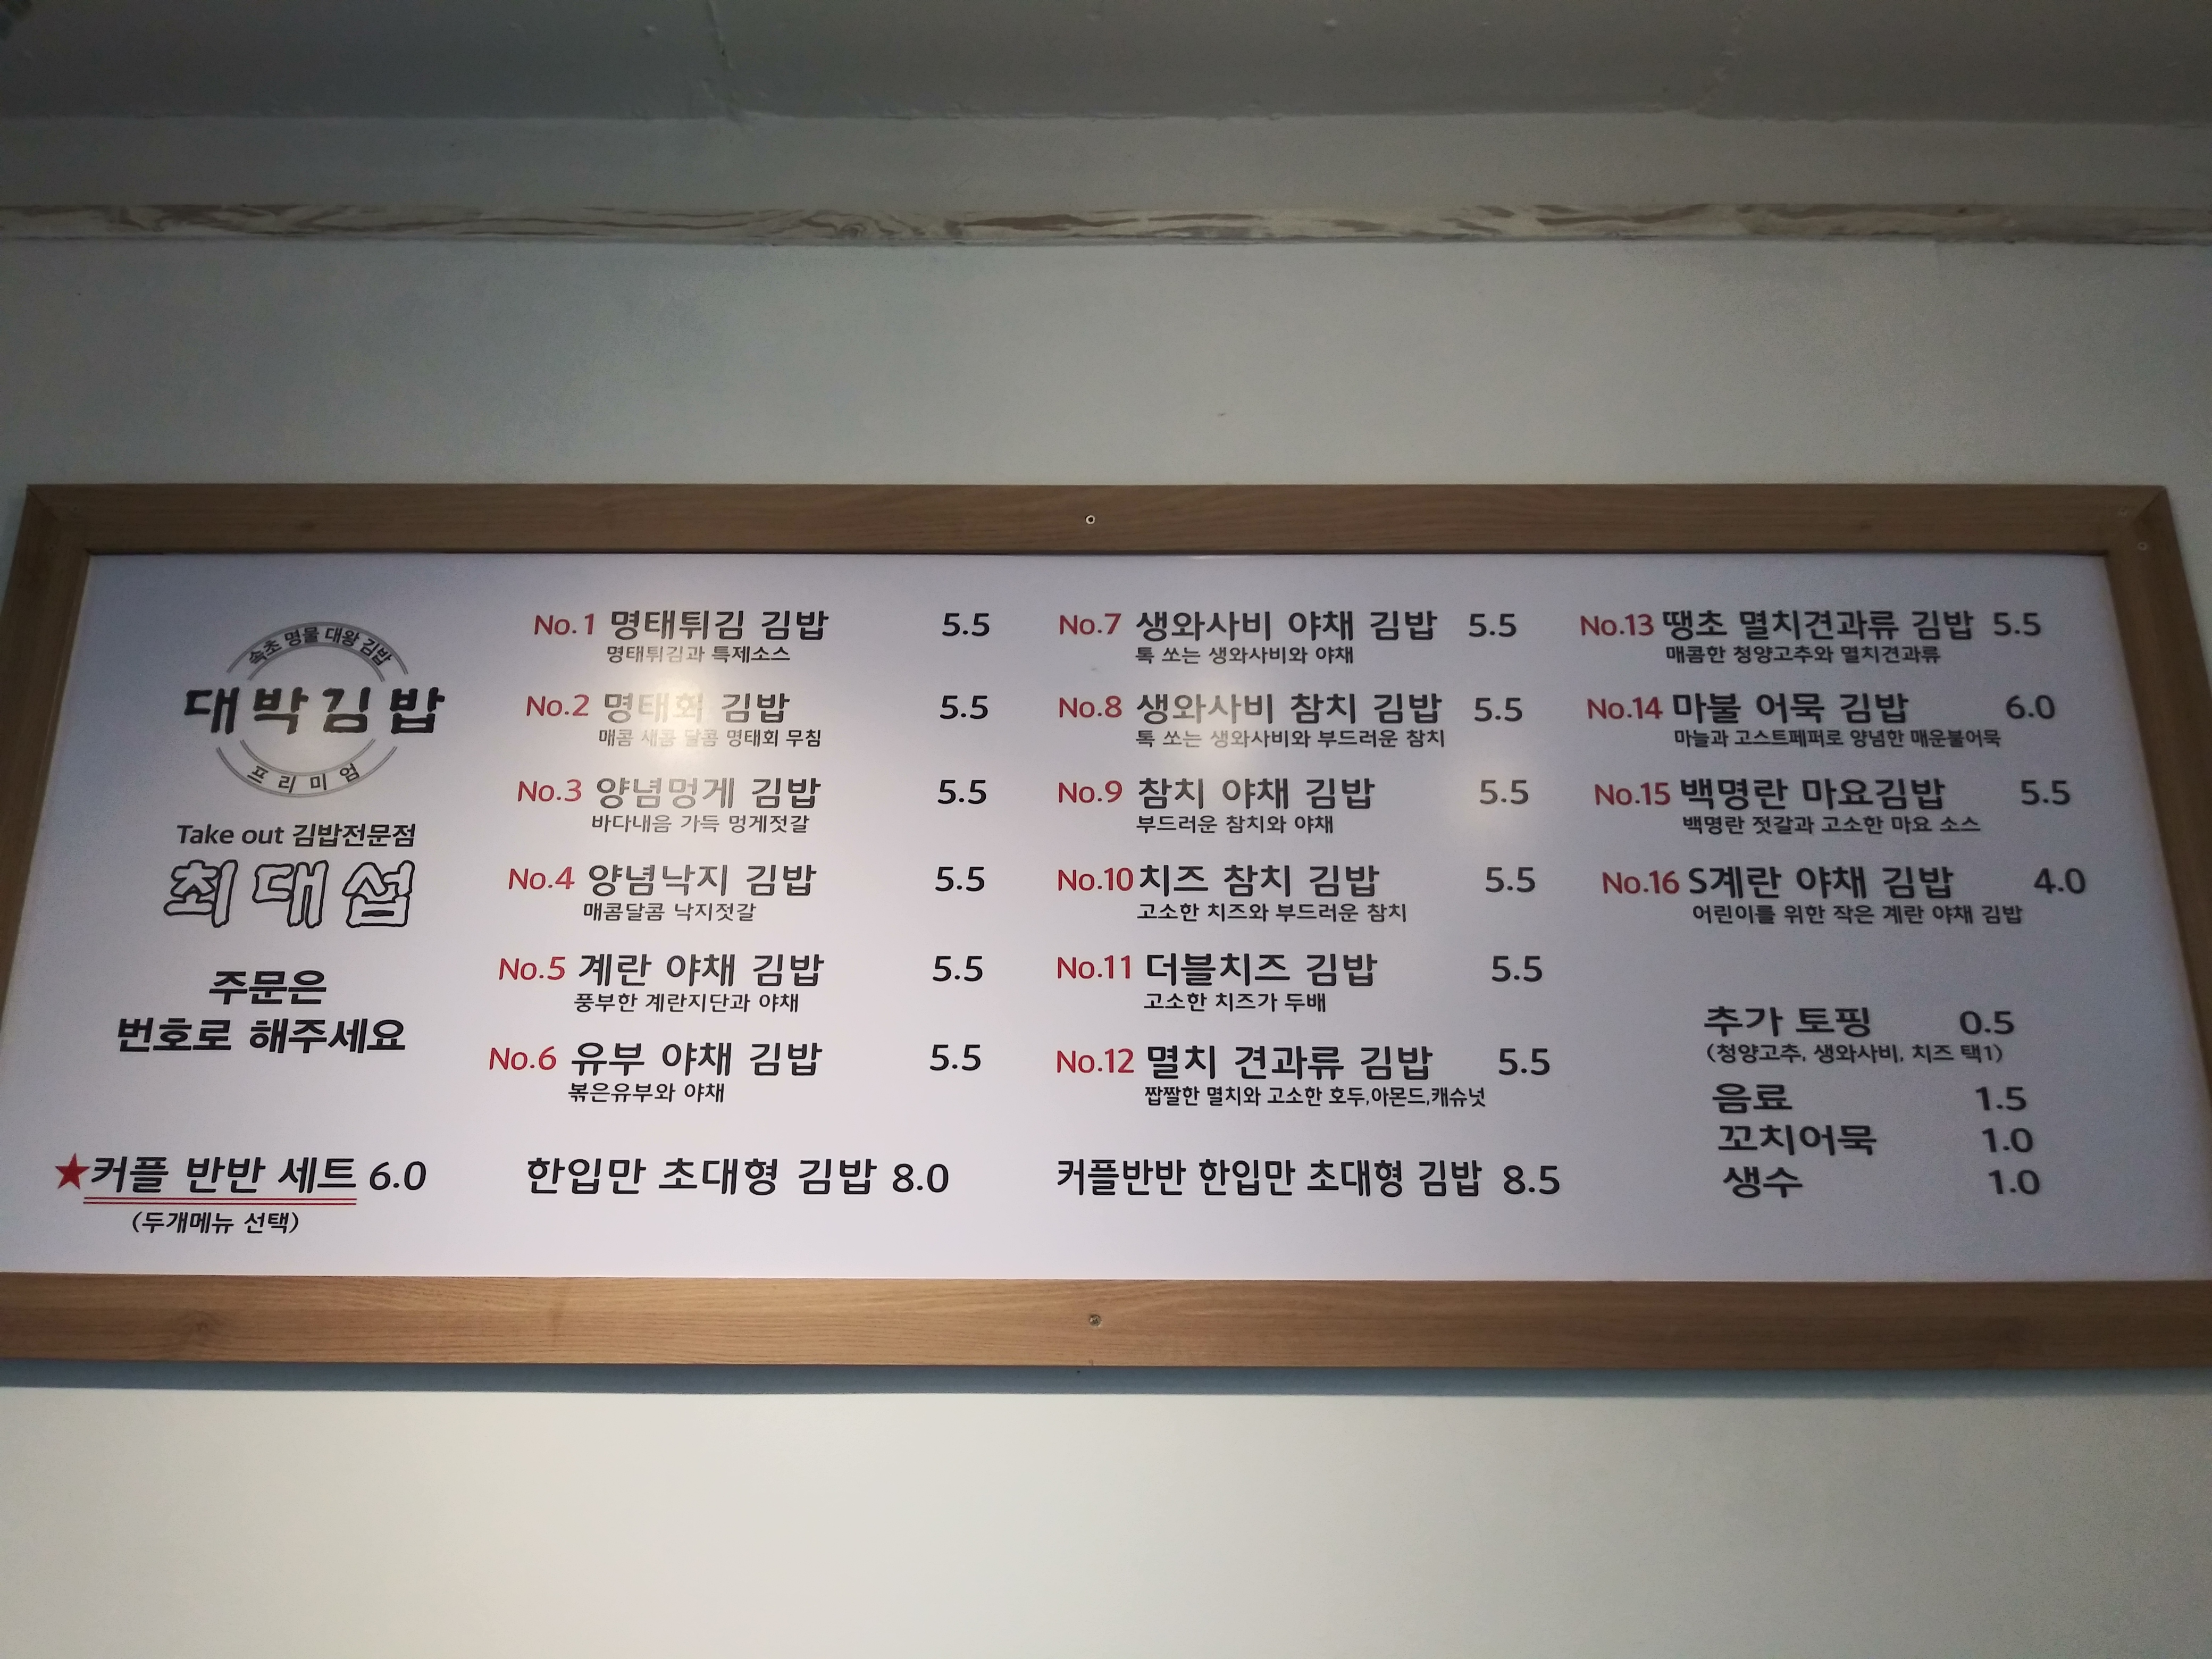 속초 명물 대왕 김밥
대박김밥
프리미엄
Take out 김밥전문점
최대섭
주문은
번호로 해주세요
★커플 반반 세트 6.0
(두개메뉴 선택)
No.1 명태튀김 김밥 5.5
명태튀김과 특제소스
No.2 명태회 김밥 5.5
매콤 새콤 달콤 명태회 무침
No.3 양념멍게 김밥 5.5
바다내음 가득 멍게젓갈
No.4 양념낙지 김밥 5.5
매콤달콤 낙지젓갈
No.5 계란 야채 김밥 5.5
풍부한 계란지단과 야채
No.6 유부 야채 김밥 5.5
볶은유부와 야채
한입만 초대형 김밥 8.0
No.7 생와사비 야채 김밥 5.5
톡 쏘는 생와사비와 야채
No.8 생와사비 참치 김밥 5.5
톡 쏘는 생와사비와 부드러운 참치
No.9 참치 야채 김밥 5.5
부드러운 참치와 야채
No.10 치즈 참치 김밥 5.5
고소한 치즈와 부드러운 참치
No.11 더블치즈 김밥 5.5
고소한 치즈가 두배
No.12 멸치 견과류 김밥 5.5
짭짤한 멸치와 고소한 호두,아몬드,캐슈넛
커플반반 한입만 초대형 김밥 8.5
No.13 땡초 멸치견과류 김밥 5.5
매콤한 청양고추와 멸치견과류
No.14 마불 어묵 김밥 6.0
마늘과 고스트페퍼로 양념한 매운불어묵
No.15 백명란 마요김밥 5.5
백명란 젓갈과 고소한 마요 소스
No.16 S계란 야채 김밥 4.0
어린이를 위한 작은 계란 야채 김밥
추가 토핑 0.5
(청양고추, 생와사비, 치즈 택1)
음료 1.5
꼬치어묵 1.0
생수 1.0